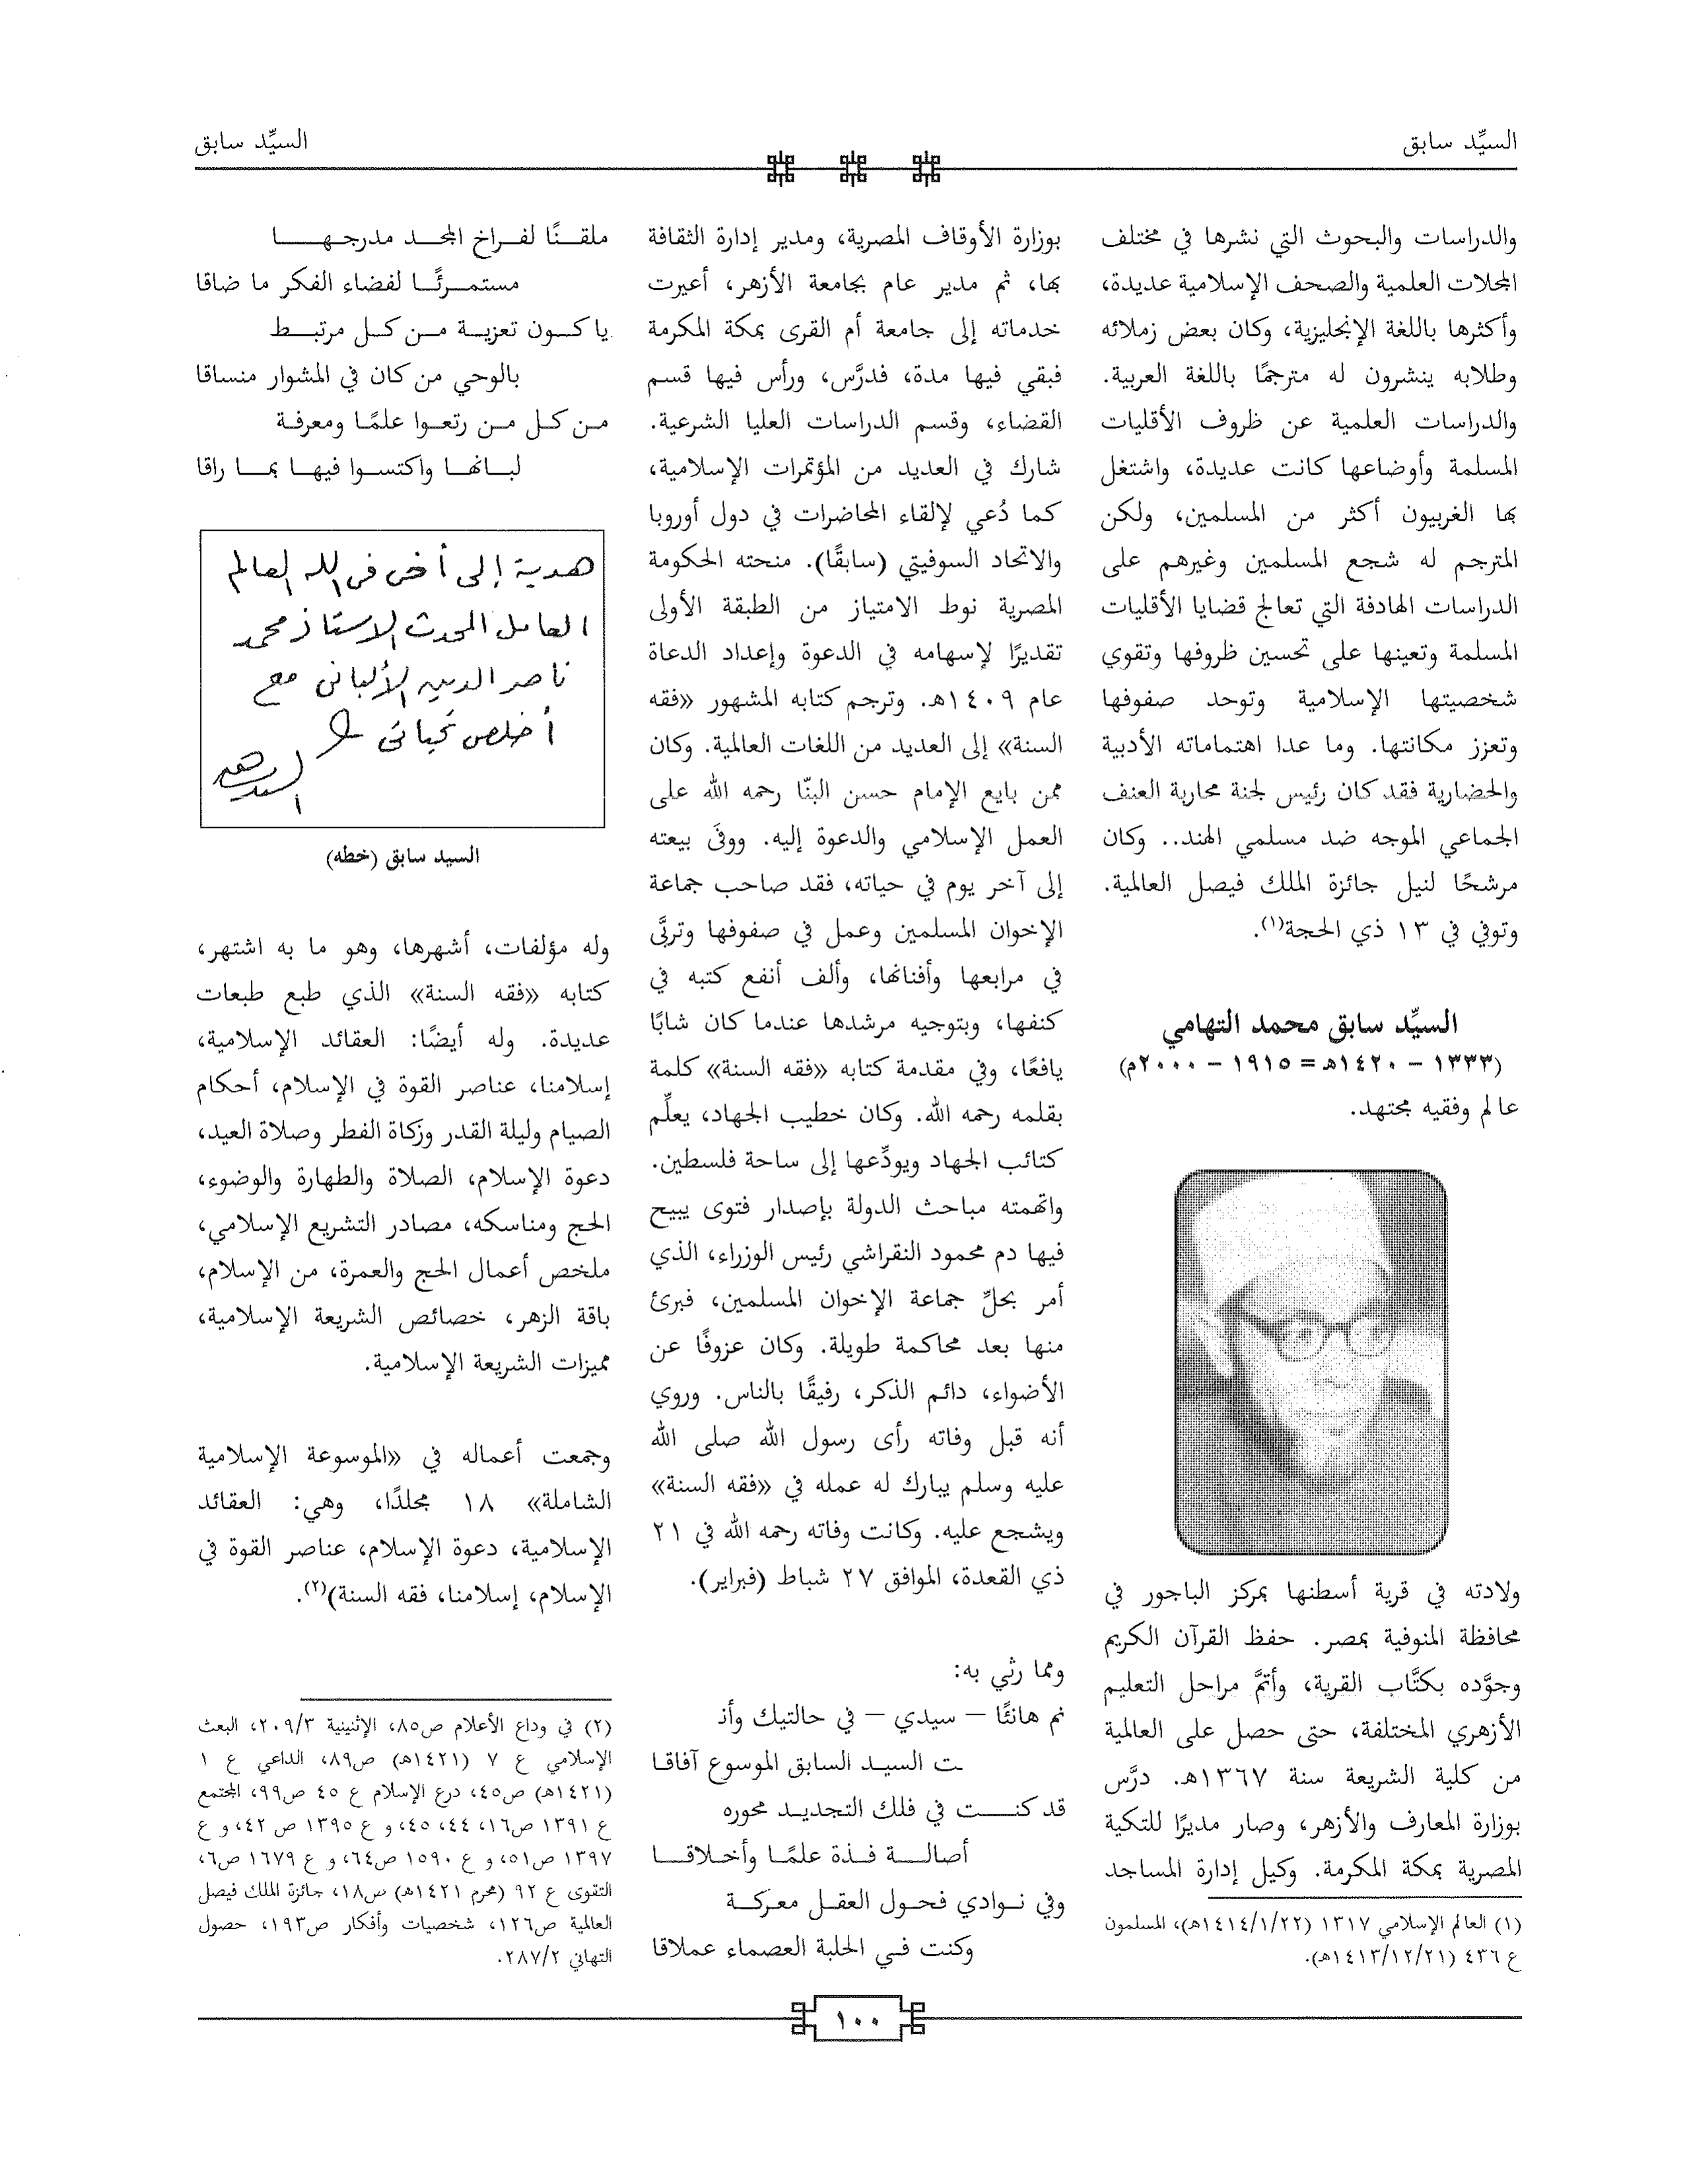 السيِّد سابق
السيِّد سابق
والدراسات والبحوث التي نشرها في مختلف
المجلات العلمية والصحف الإسلامية عديدة،
وأكثرها باللغة الإنجليزية، وكان بعض زملائه
وطلابه ينشرون له مترجمًا باللغة العربية.
والدراسات العلمية عن ظروف الأقليات
المسلمة وأوضاعها كانت عديدة، واشتغل
بها الغربيون أكثر من المسلمين، ولكن
المترجم له شجع المسلمين وغيرهم على
الدراسات الهادفة التي تعالج قضايا الأقليات
المسلمة وتعينها على تحسين ظروفها وتقوي
شخصيتها الإسلامية وتوحد صفوفها
وتعزز مكانتها. وما عدا اهتماماته الأدبية
والحضارية فقد كان رئيس لجنة محاربة العنف
الجماعي الموجه ضد مسلمي الهند.. وكان
مرشحًا لنيل جائزة الملك فيصل العالمية.
وتوفي في ١٣ ذي الحجة(١).
السيِّد سابق محمد التهامي
(١٣٣٣ – ١٤٢٠هـ = ١٩١٥ – ٢٠٠٠م)
عالم وفقيه مجتهد.
ولادته في قرية أسطنها بمركز الباجور في
محافظة المنوفية بمصر. حفظ القرآن الكريم
وجوَّده بكتَّاب القرية، وأتمَّ مراحل التعليم
الأزهري المختلفة، حتى حصل على العالمية
من كلية الشريعة سنة ١٣٦٧هـ. درَّس
بوزارة المعارف والأزهر، وصار مديرًا للتكية
المصرية بمكة المكرمة. وكيل إدارة المساجد
(١) العالم الإسلامي ١٣١٧ (١٤١٤/١/٢٢هـ)، المسلمون
ع ٤٣٦ (١٤١٣/١٢/٢١هـ).
بوزارة الأوقاف المصرية، ومدير إدارة الثقافة
بها، ثم مدير عام بجامعة الأزهر، أعيرت
خدماته إلى جامعة أم القرى بمكة المكرمة
فبقي فيها مدة، فدرَّس، ورأس فيها قسم
القضاء، وقسم الدراسات العليا الشرعية.
شارك في العديد من المؤتمرات الإسلامية،
كما دُعي لإلقاء المحاضرات في دول أوروبا
والاتحاد السوفيتي (سابقًا). منحته الحكومة
المصرية نوط الامتياز من الطبقة الأولى
تقديرًا لإسهامه في الدعوة وإعداد الدعاة
عام ١٤٠٩هـ. وترجم كتابه المشهور «فقه
السنة» إلى العديد من اللغات العالمية. وكان
ممن بايع الإمام حسن البنّا رحمه الله على
العمل الإسلامي والدعوة إليه. ووفَى بيعته
إلى آخر يوم في حياته، فقد صاحب جماعة
الإخوان المسلمين وعمل في صفوفها وتربَّى
في مرابعها وأفنائها، وألف أنفع كتبه في
كنفها، وبتوجيه مرشدها عندما كان شابًا
يافعًا، وفي مقدمة كتابه «فقه السنة» كلمة
بقلمه رحمه الله. وكان خطيب الجهاد، يعلِّم
كتائب الجهاد ويودِّعها إلى ساحة فلسطين.
واتهمته مباحث الدولة بإصدار فتوى يبيح
فيها دم محمود النقراشي رئيس الوزراء، الذي
أمر بحلِّ جماعة الإخوان المسلمين، فبرئ
منها بعد محاكمة طويلة. وكان عزوفًا عن
الأضواء، دائم الذكر، رفيقًا بالناس. وروي
أنه قبل وفاته رأى رسول الله صلى الله
عليه وسلم يبارك له عمله في «فقه السنة»
ويشجع عليه. وكانت وفاته رحمه الله في ٢١
ذي القعدة، الموافق ٢٧ شباط (فبراير).
ومما رثي به:
نم هانئًا – سيدي – في حالتيك وأنـ
ـت السيد السابق الموسوع آفاقا
قد كنت في فلك التجديد محوره
أصالة فذة علمًا وأخلاقا
وفي نوادي فحول العقل معركة
وكنت في الحلبة العصماء عملاقا
ملقنًا لفراخ المجد مدرجها
مستمرئًا لفضاء الفكر ما ضاقا
يا كون تعزية من كل مرتبط
بالوحي من كان في المشوار منساقا
من كل من رتعوا علمًا ومعرفة
لبانها واكتسوا فيها بما راقا
هدية إلى أخى فى الله العالم
العامل المحدث الاستاذ محمد
ناصر الدين الألبانى مع
أخلص تحياتى
السيد سابق (خطه)
وله مؤلفات، أشهرها، وهو ما به اشتهر،
كتابه «فقه السنة» الذي طبع طبعات
عديدة. وله أيضًا: العقائد الإسلامية،
إسلامنا، عناصر القوة في الإسلام، أحكام
الصيام وليلة القدر وزكاة الفطر وصلاة العيد،
دعوة الإسلام، الصلاة والطهارة والوضوء،
الحج ومناسكه، مصادر التشريع الإسلامي،
ملخص أعمال الحج والعمرة، من الإسلام،
باقة الزهر، خصائص الشريعة الإسلامية،
مميزات الشريعة الإسلامية.
وجمعت أعماله في «الموسوعة الإسلامية
الشاملة» ١٨ مجلدًا، وهي: العقائد
الإسلامية، دعوة الإسلام، عناصر القوة في
الإسلام، إسلامنا، فقه السنة)(٢).
(٢) في وداع الأعلام ص٨٥، الإثنينية ٢٠٩/٣، البعث
الإسلامي ع ٧ (١٤٢١هـ) ص٨٩، الداعي ع ١
(١٤٢١هـ) ص٤٥، درع الإسلام ع ٤٥ ص٩٩، المجتمع
ع ١٣٩١ ص١٦، ٤٤، ٤٥، و ع ١٣٩٥ ص ٤٢، و ع
١٣٩٧ ص٥١، و ع ١٥٩٠ ص٦٤، و ع ١٦٧٩ ص٦،
التقوى ع ٩٢ (محرم ١٤٢١هـ) ص١٨، جائزة الملك فيصل
العالمية ص١٢٦، شخصيات وأفكار ص١٩٣، حصول
التهاني ٢٨٧/٢.
١٠٠